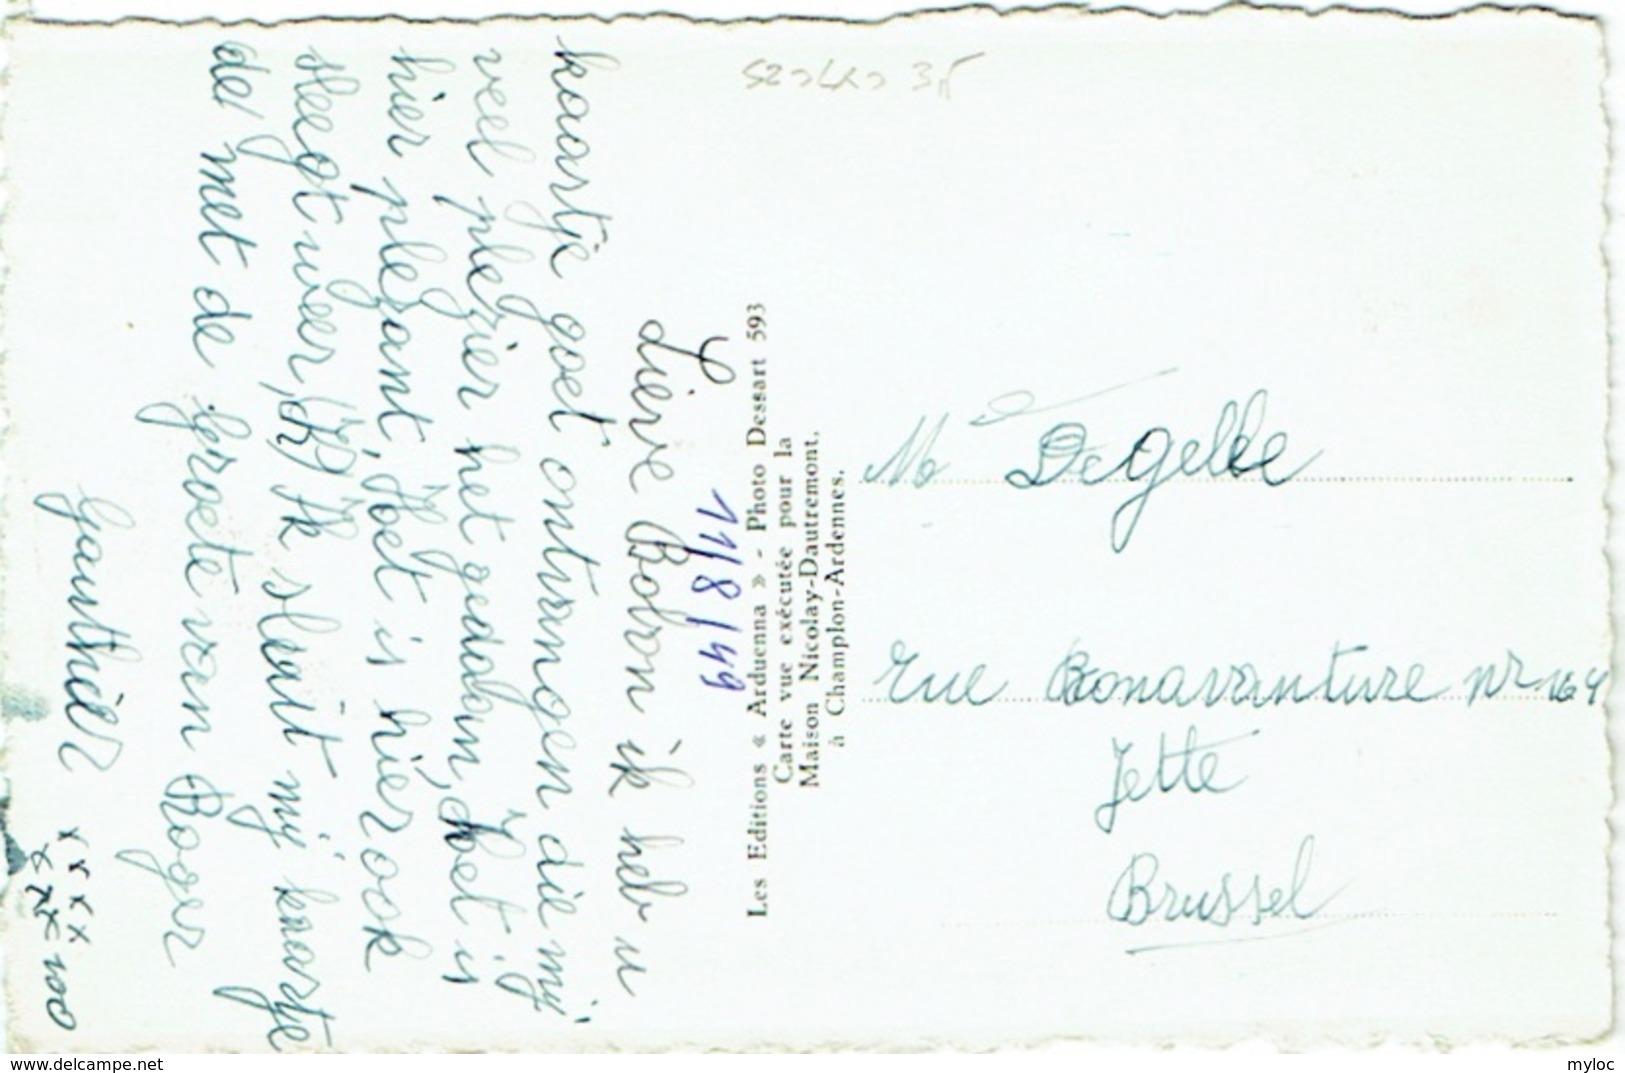 11/8/49
Lieve Bobon ik heb u
kaartje goet ontvangen die mij
veel plezier het gedaan, hoet is
hier plezant, Hoet is hier ook
sleegt weer, (Ik) Ik sleuit mij kaartje
de met de groete van Roger
Gauthier
x x x x
x x x x 100
Les Editions « Arduenna » - Photo Dessart 593
Carte vue exécutée pour la
Maison Nicolay-Dautremont,
à Champlon-Ardennes.
Me De gelle
Rue Bonavanture nr 164
Jette
Brussel
www.delcampe.net
myloc